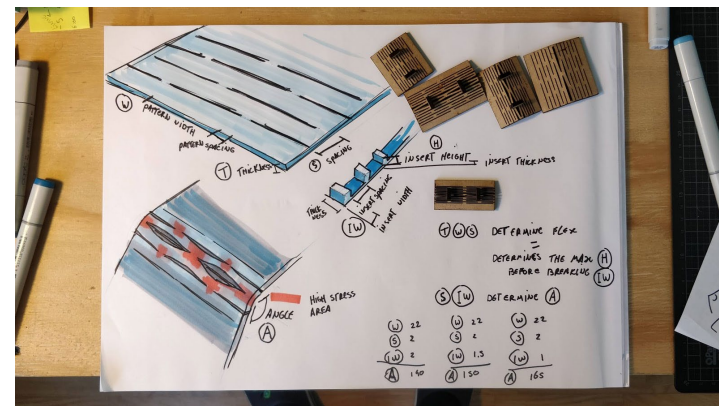 W PATTERN WIDTH
PATTERN SPACING
T THICKNESS
S SPACING
H
INSERT HEIGHT
INSERT THICKNESS
THICKNESS
INSERT SPACING
INSERT WIDTH
IW
T W S DETERMINE FLEX
=
DETERMINES THE MAX H
BEFORE BREAKING IW
HIGH STRESS
AREA
ANGLE
A
S IW DETERMINE A
W 22 W 22 W 22
S 2 S 2 S 2
IW 2 IW 1.5 IW 1
A 140 A 150 A 165